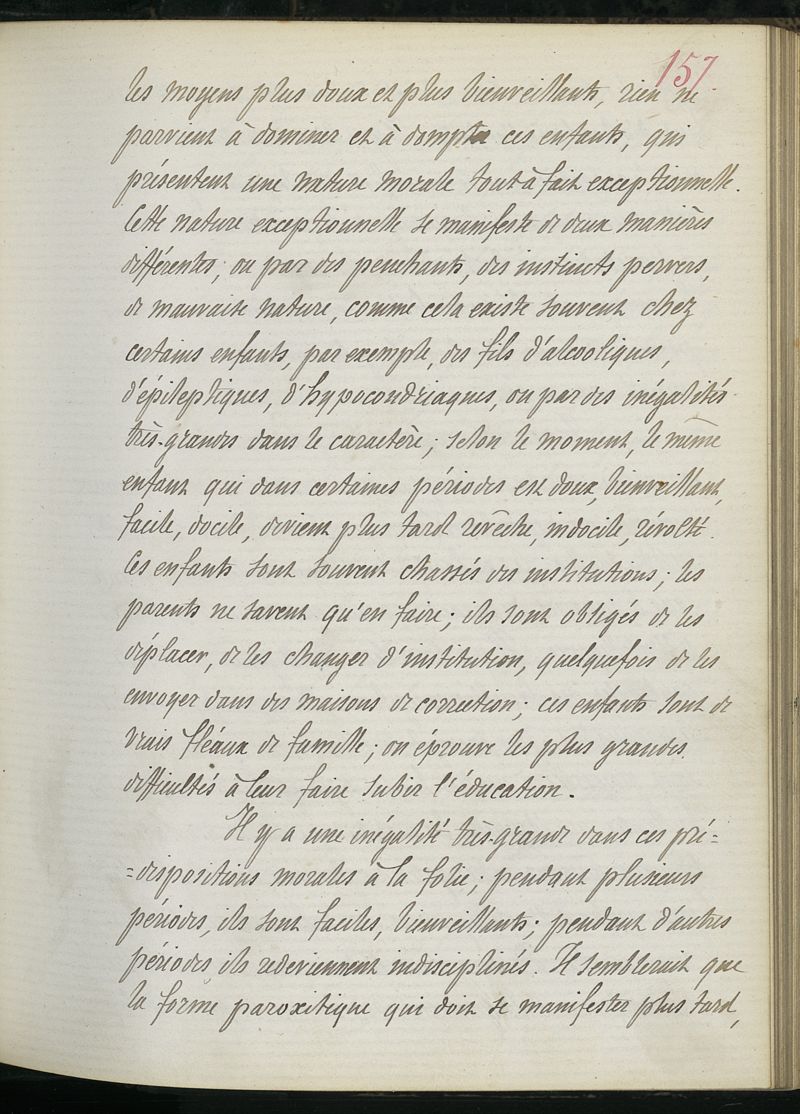 157
les moyens plus doux et plus bienveillants, rien ne
parvient à dominer et à dompter ces enfants, qui
présentent une nature morale tout à fait exceptionnelle.
Cette nature exceptionnelle se manifeste de deux manières
différentes; ou par des penchants, des instincts pervers,
de mauvaise nature, comme cela existe souvent chez
certains enfants, par exemple, des fils d'alcooliques,
d'épileptiques, d'hypocondriaques, ou par des inégalités
très-grandes dans le caractère; selon le moment, le même
enfant qui dans certaines périodes est doux, bienveillant,
facile, docile, devient plus tard revêche, indocile, révolté.
Ces enfants sont souvent chassés des institutions; les
parents ne savent qu'en faire; ils sont obligés de les
déplacer, de les changer d'institution, quelquefois de les
envoyer dans des maisons de correction; ces enfants sont de
vrais fléaux de famille; on éprouve les plus grandes
difficultés à leur faire subir l'éducation.
Il y a une inégalité très-grande dans ces pré=
=dispositions morales à la folie; pendant plusieurs
périodes, ils sont faciles, bienveillants; pendant d'autres
périodes ils redeviennent indisciplinés. Il semblerait que
la forme paroxitique qui doit se manifester plus tard,